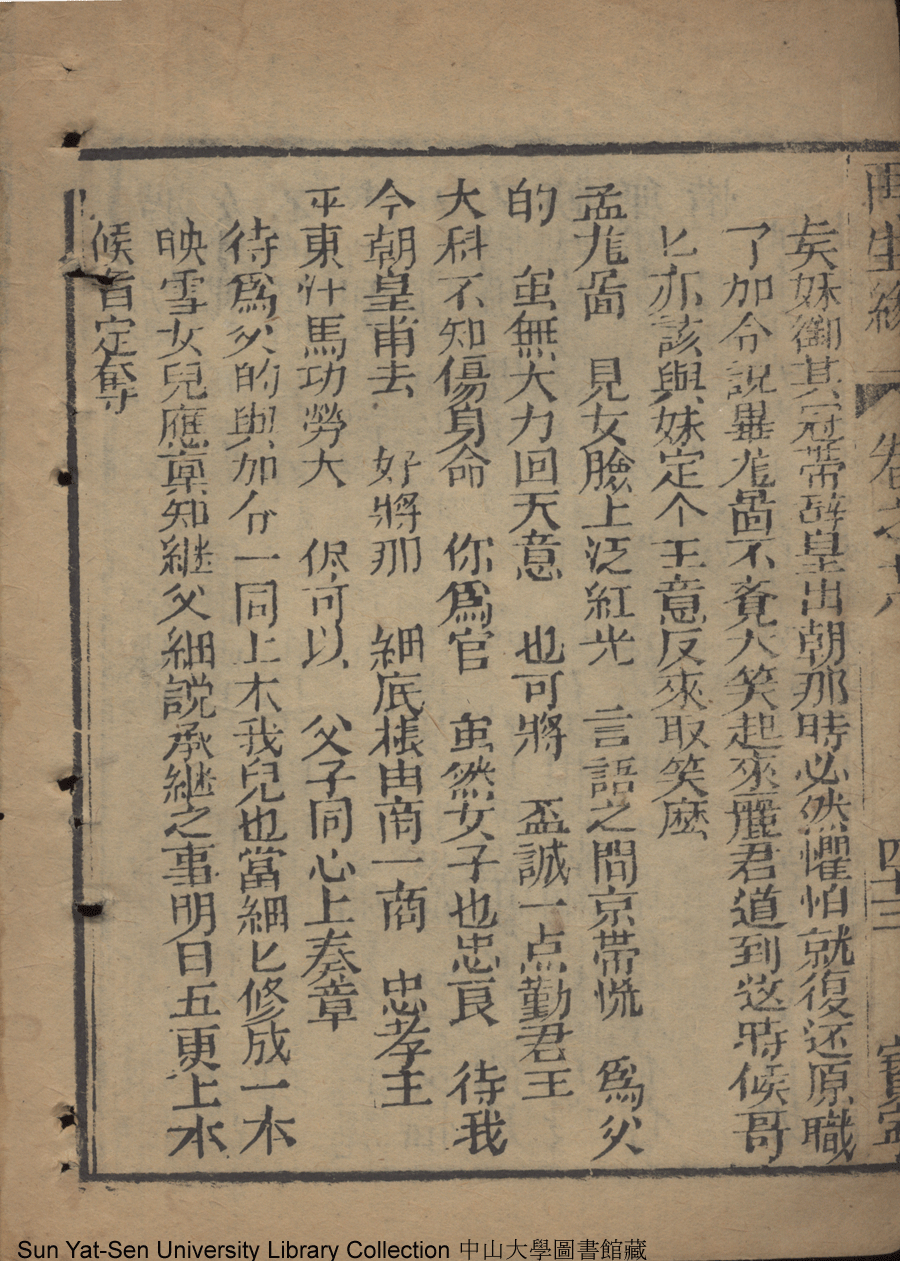 再生緣 卷之十八 四十三 寶寧
矣妹御其冠帶辞皇出朝那時必然懼怕就復还原職
了加令説畢尨啚不覔大笑起來厯君道到这時候哥
匕亦該與妹定个主意反來取笑麽
孟尨啚 見女臉上泛紅光 言語之間京帯慌 爲父
的 虽無大力回天意 也可將 盃誠一点勤君王
大科不知傷身命 你爲官 虽然女子也忠良 待我
今朝皇甫去 好將那 細底根由商一商 忠孝王
平東汗馬功勞大 保可以 父子同心上奏章
待爲父的與加令一同上本我兒也當細匕修成一本
映雪女兒應禀知継父細説承継之事明日五更上本
候旨定奪
Sun Yat-Sen University Library Collection 中山大學圖書館藏